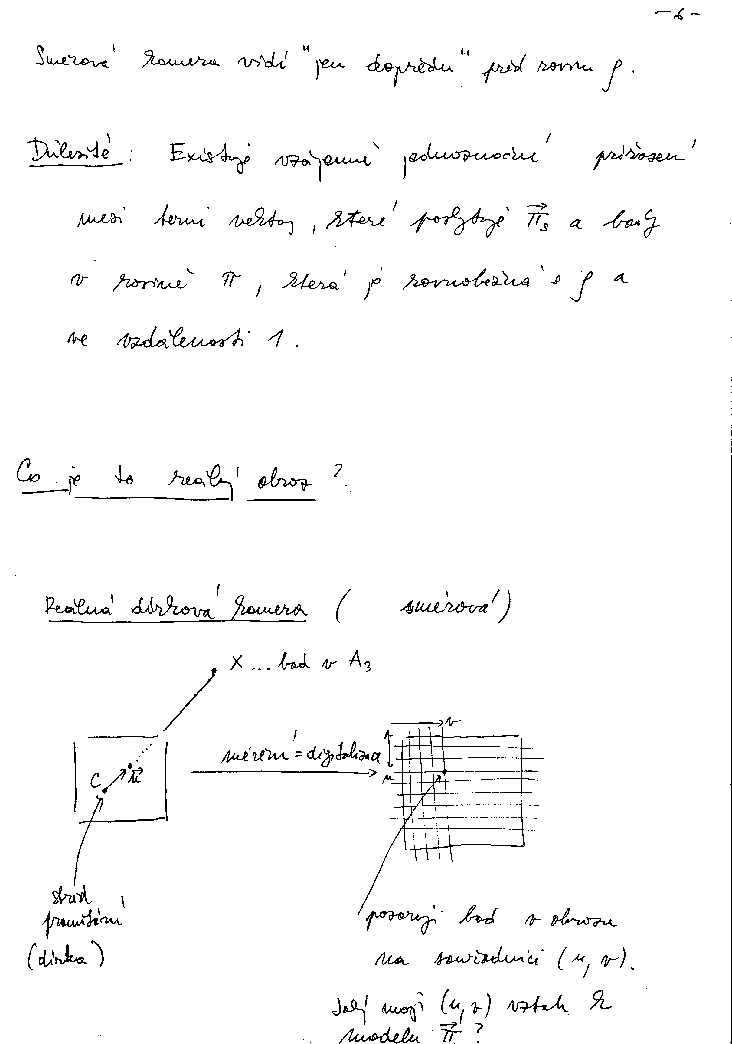 -6-
Směrová kamera vidí "jen dopředu" před rovinu ρ.
Důležité: Existuje vzájemně jednoznačné přiřazení
mezi těmi vektory, které poskytuje π⃗s a body
v rovině π, která je rovnoběžná s ρ a
ve vzdálenosti 1.
Co je to reálný obraz?
Reálná dírková kamera ( směrová )
X ... bod v A₃
měření = digitalizace
v
u
C
u⃗
střed
promítání
(dírka)
pozoruji bod v obrazu
na souřadnici (u, v).
Jaký mají (u,v) vztah k
modelu π⃗ ?